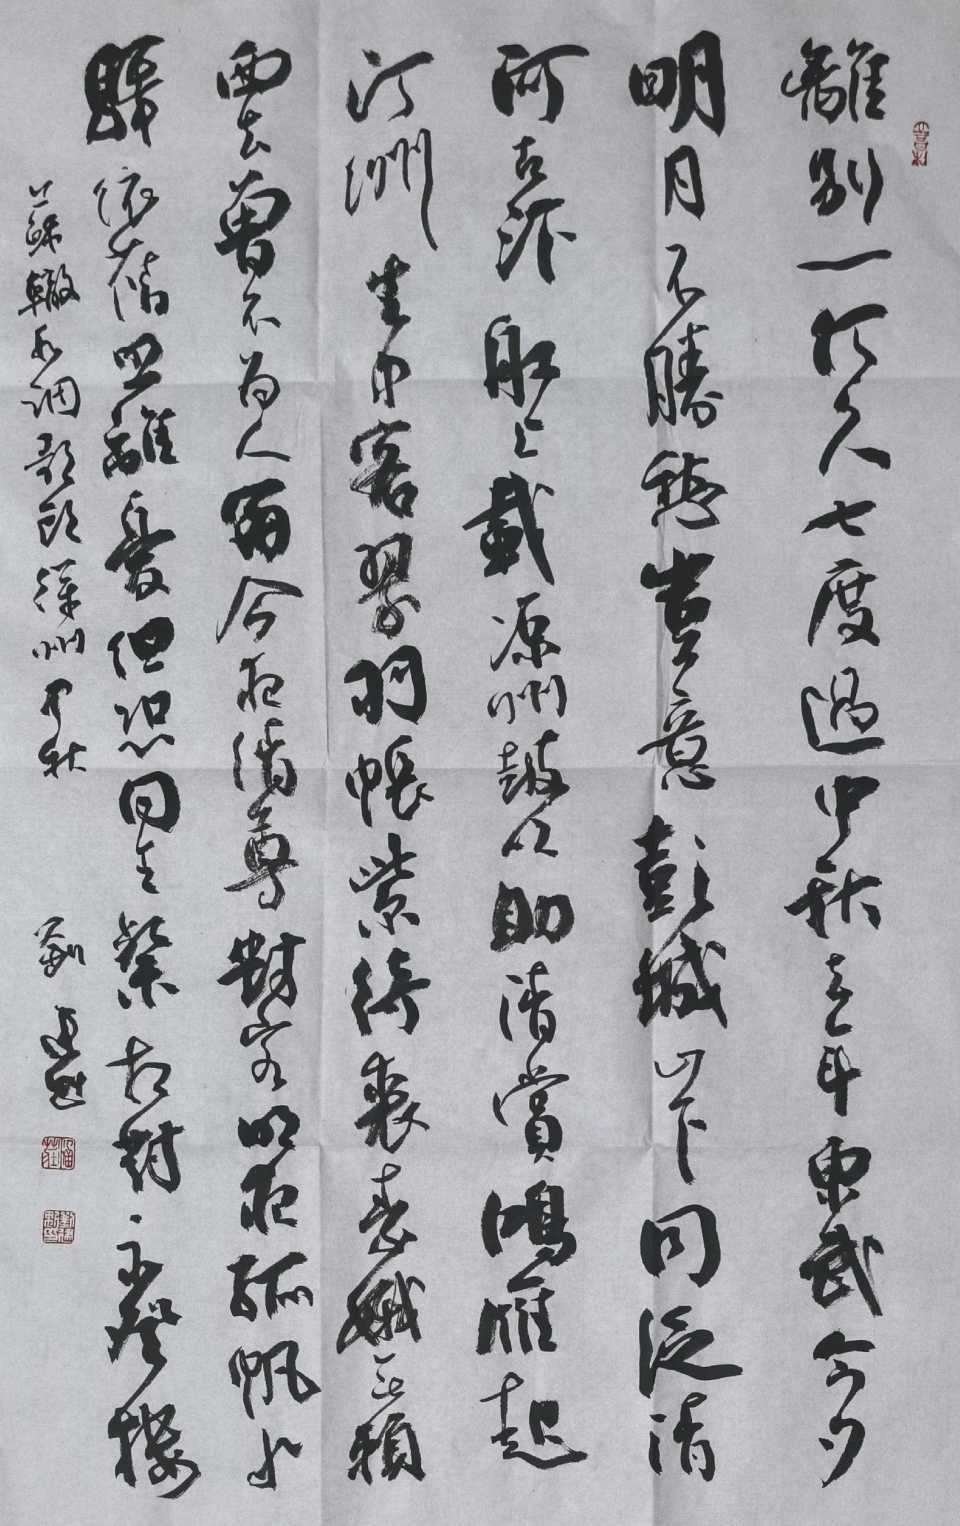 離別一何久七度過中秋去年東武今夕
明月不勝愁豈意彭城山下同泛清
河古汴舡上載涼州鼓吹助清賞鴻雁起
汀洲坐中客翠羽帳紫綺裘素娥無賴
西去曾不為人留今夜清尊對客明夜孤帆水
驛依舊照離憂但恐同王粲相對永登樓
蘇轍水調歌頭徐州中秋 劉建